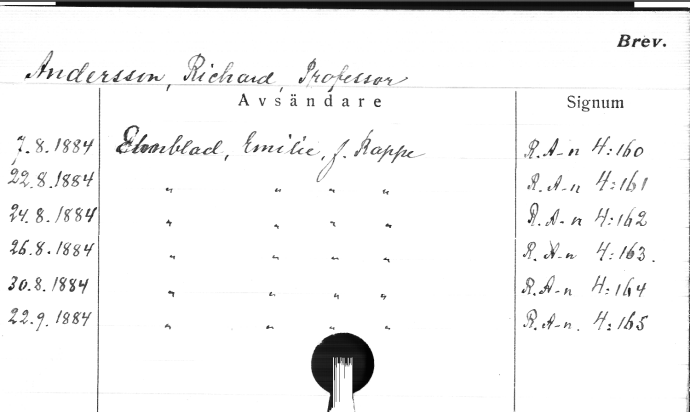 Brev.
Andersson, Richard, Professor
Avsändare Signum
7.8.1884 Elmblad, Emilie, f. Rappe R.A-n 4:160
22.8.1884 " " " " R.A-n 4:161
24.8.1884 " " " " R.A-n 4:162
26.8.1884 " " " " R.A-n 4:163.
30.8.1884 " " " " R.A-n 4:164
22.9.1884 " " " " R.A-n. 4:165